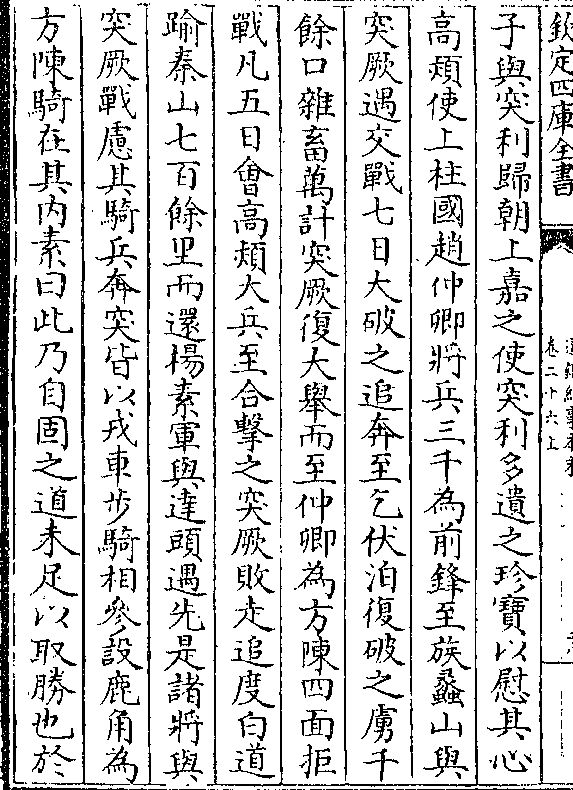 欽定四庫全書
卷二十六上
子與突利歸朝上嘉之使突利多遺之珍寶以慰其心
高熲使上柱國趙仲卿將兵三千為前鋒至族蠡山與
突厥遇交戰七日大破之追奔至乞伏泊復破之虜千
餘口雜畜萬計突厥復大舉而至仲卿為方陳四面拒
戰凡五日會高熲大兵至合擊之突厥敗走追度白道
踰秦山七百餘里而還楊素軍與達頭遇先是諸將與
突厥戰慮其騎兵奔突皆以戎車步騎相參設鹿角為
方陳騎在其内素曰此乃自固之道未足以取勝也於